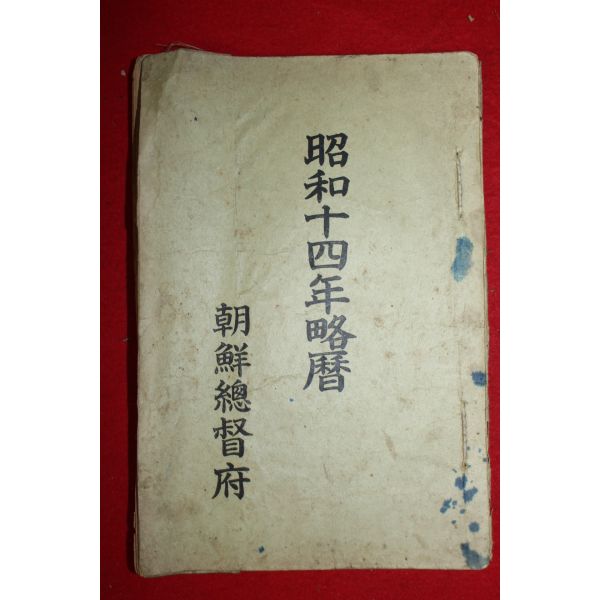 昭和十四年略暦
朝鮮總督府